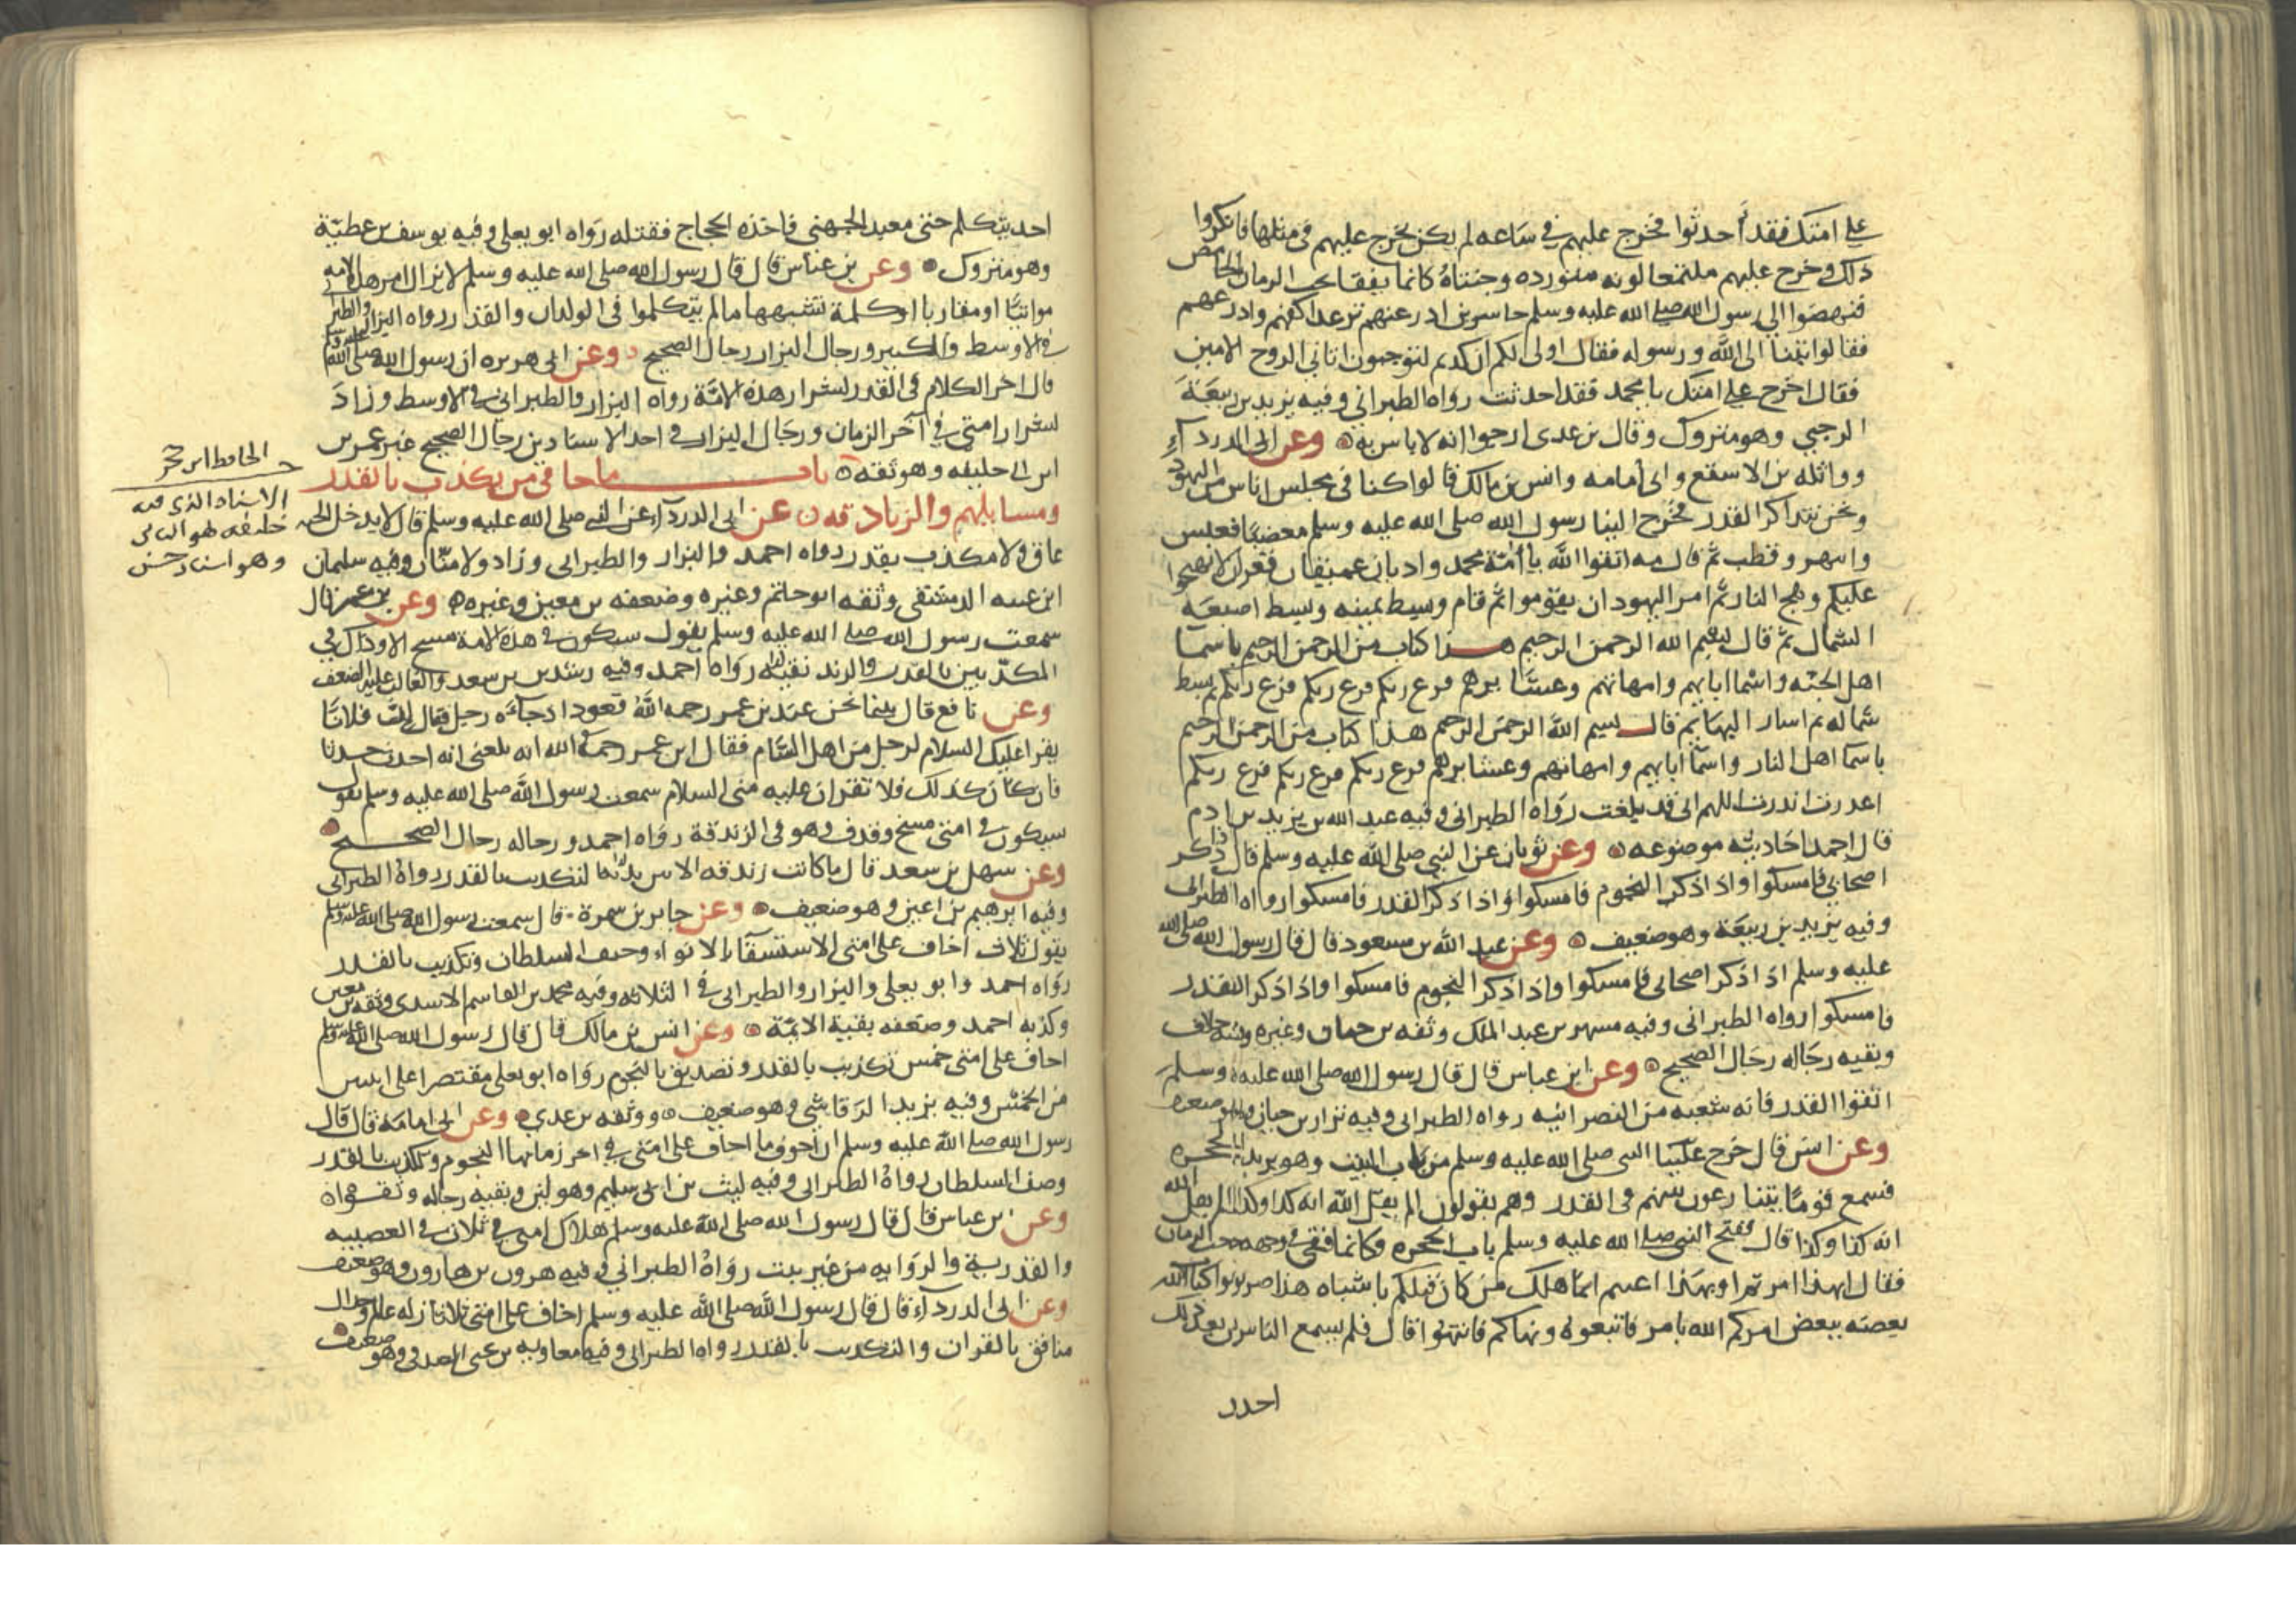 على امتك فقد أحدثوا فخرج عليهم في ساعه لم يكن يخرج عليهم في مثلها فانكروا
ذلك وخرج عليهم ملتمعا لونه متورده وجنتاه كانما يفقا بحب الرمان الحامض
فنهضوا الى رسول الله صلى الله عليه وسلم حاسرين اذرعهم ترعد اكفهم واذرعهم
فقالوا تبنا الى الله ورسوله فقال اولى لكم ان كدتم لتوجبون اتاني الروح الامين
فقال اخرج على امتك يا محمد فقد احدثت رواه الطبراني وفيه يزيد بن ربيعة
الرحبي وهو متروك وقال بن عدى ارجوا انه لا باس به وعن ابى الدردآء
وواثله بن الاسقع وابى أمامه وانس بن مالك قالوا كنا في مجلس اناس من اليهود
ونحن نتذاكر القدر فخرج الينا رسول الله صلى الله عليه وسلم مغضبا فعبس
وانتهر وقطب ثم قال مه اتقوا الله يا أمة محمد واديان عميقان قعران لا تهيجوا
عليكم وهج النار ثم امر اليهود ان يقوموا ثم قام وبسط يمينه وبسط اصبعه
الشمال ثم قال بسم الله الرحمن الرحيم هذا كتاب من الرحمن الرحيم باسما
اهل الجنه واسما ابايهم وامهاتهم وعشايرهم فرغ ربكم فرغ ربكم فرغ ربكم ثم بسط
شماله ثم اشار اليها ثم قال بسم الله الرحمن الرحيم هذا كتاب من الرحمن الرحيم
باسما اهل النار واسمآ ابايهم وامهاتهم وعشايرهم فرغ ربكم فرغ ربكم فرغ ربكم
اعذرت انذرت اللهم انى قد بلغت رواه الطبرانى وفيه عبد الله بن يزيد بن ادم
قال احمد احاديثه موضوعه وعن ثوبان عن النبي صلى الله عليه وسلم قال اذا ذكر
اصحابي فامسكوا واذا ذكر النجوم فامسكوا واذا ذكر القدر فامسكوا رواه الطبرانى
وفيه يزيد بن ربيعة وهو ضعيف وعن عبد الله بن مسعود قال قال رسول الله صلى الله
عليه وسلم اذا ذكر اصحابى فامسكوا واذا ذكر النجوم فامسكوا واذا ذكر القدر
فامسكوا رواه الطبرانى وفيه مسهر بن عبد الملك وثقه بن حبان وغيره وفيه خلاف
وبقيه رجاله رجال الصحيح وعن ابن عباس قال قال رسول الله صلى الله عليه وسلم
اتقوا القدر فانه شعبه من النصرانيه رواه الطبرانى وفيه نزار بن حيان
وعن انس قال خرج علينا النبى صلى الله عليه وسلم من باب البيت وهو يريد الحجره
فسمع قوما يتنازعون بينهم في القدر وهم يقولون الم يقل الله ايه كذا وكذا الم يقل الله
ايه كذا وكذا قال ففتح النبي صلى الله عليه وسلم باب الحجره وكانما فقئ في وجهه حب الرمان
فقال ابهذا امرتم او بهذا عنيتم انما هلك من كان قبلكم باشباه هذا ضربوا كتاب الله
بعضه ببعض امركم الله بامر فاتبعوه ونهاكم فانتهوا قال فلم يسمع الناس بعد ذلك
احدا
احد يتكلم حتى معبد الجهني فاخذه الحجاج فقتله رواه ابو يعلى وفيه يوسف بن عطية
وهو متروك وعن بن عباس قال قال رسول الله صلى الله عليه وسلم لا يزال امر هذه الامه
مواتيا او مقاربا او كلمة تشبهها ما لم يتكلموا في الولدان والقدر رواه البزار والطبراني
في الاوسط والكبير ورجال البزار رجال الصحيح وعن ابى هريره ان رسول الله صلى الله عليه وسلم
قال اخر الكلام في القدر لشرار هذه الامة رواه البزار والطبراني في الاوسط وزاد
لشرار امتى في آخر الزمان ورجال البزار في احد الاسنادين رجال الصحيح غير عمر بن
ابى خليفه وهو ثقه باب ما جا في من يكذب بالقدر
ومسايلهم والزنادقه عن ابى الدردآء عن النبى صلى الله عليه وسلم قال لا يدخل الجنه
عاق ولا مكذب بقدر رواه احمد والبزار والطبرانى وزاد ولا منان وفيه سليمان
ابن عتبه الدمشقى وثقه ابو حاتم وغيره وضعفه بن معين وغيره وعن بن عمر قال
سمعت رسول الله صلى الله عليه وسلم يقول سيكون في هذه الامة مسخ الا وذاك في
المكذبين بالقدر والزنديقيه رواه احمد وفيه رشدين بن سعد والغالب عليه الضعف
وعن نافع قال بينما نحن عند بن عمر رحمه الله قعودا اذ جاءه رجل فقال ان فلانا
يقرا عليك السلام لرجل من اهل الشام فقال ابن عمر رحمه الله انه بلغنى انه احدث حدثا
فان كان كذلك فلا تقران عليه منى السلام سمعت رسول الله صلى الله عليه وسلم يقول
سيكون في امتى مسخ وقذف وهو في الزندقة رواه احمد ورجاله رجال الصحيح
وعن سهل بن سعد قال ما كانت زندقه الا بين يديها التكذيب بالقدر رواه الطبرانى
وفيه ابرهيم بن اعين وهو ضعيف وعن جابر بن سمرة قال سمعت رسول الله صلى الله عليه وسلم
يقول ثلاث اخاف على امتى الاستسقاء بالانواء وحيف السلطان وتكذيب بالقدر
رواه احمد وابو يعلى والبزار والطبرانى في الثلاثه وفيه محمد بن القاسم الاسدى وثقه بن معين
وكذبه احمد وضعفه بقية الايمة وعن انس بن مالك قال قال رسول الله صلى الله عليه وسلم
اخاف على امتى خمس تكذيب بالقدر وتصديق بالنجوم رواه ابو يعلى مقتصرا على اثنين
من الخمس وفيه يزيد الرقاشي وهو ضعيف ووثقه بن عدي وعن ابى امامه قال قال
رسول الله صلى الله عليه وسلم ان اخوف ما اخاف على امتى في اخر زمانها النجوم وتكذيب بالقدر
وحيف السلطان رواه الطبرانى وفيه ليث بن ابى سليم وهو لين وبقيه رجاله وثقوا
وعن بن عباس قال قال رسول الله صلى الله عليه وسلم هلاك امتى في ثلاث في العصبيه
والقدرية والروايه من غير ثبت رواه الطبرانى وفيه هرون بن هارون وهو ضعيف
وعن ابى الدردآء قال قال رسول الله صلى الله عليه وسلم اخاف على امتى ثلاثا زلة عالم وجدال
منافق بالقران والتكذيب بالقدر رواه الطبرانى وفيه معاويه بن يحيى الصدفى وهو ضعيف
الحافظ ابن حجر
الاسناد الذى فيه
خليفه هو الثانى
وهو اسناد حسن